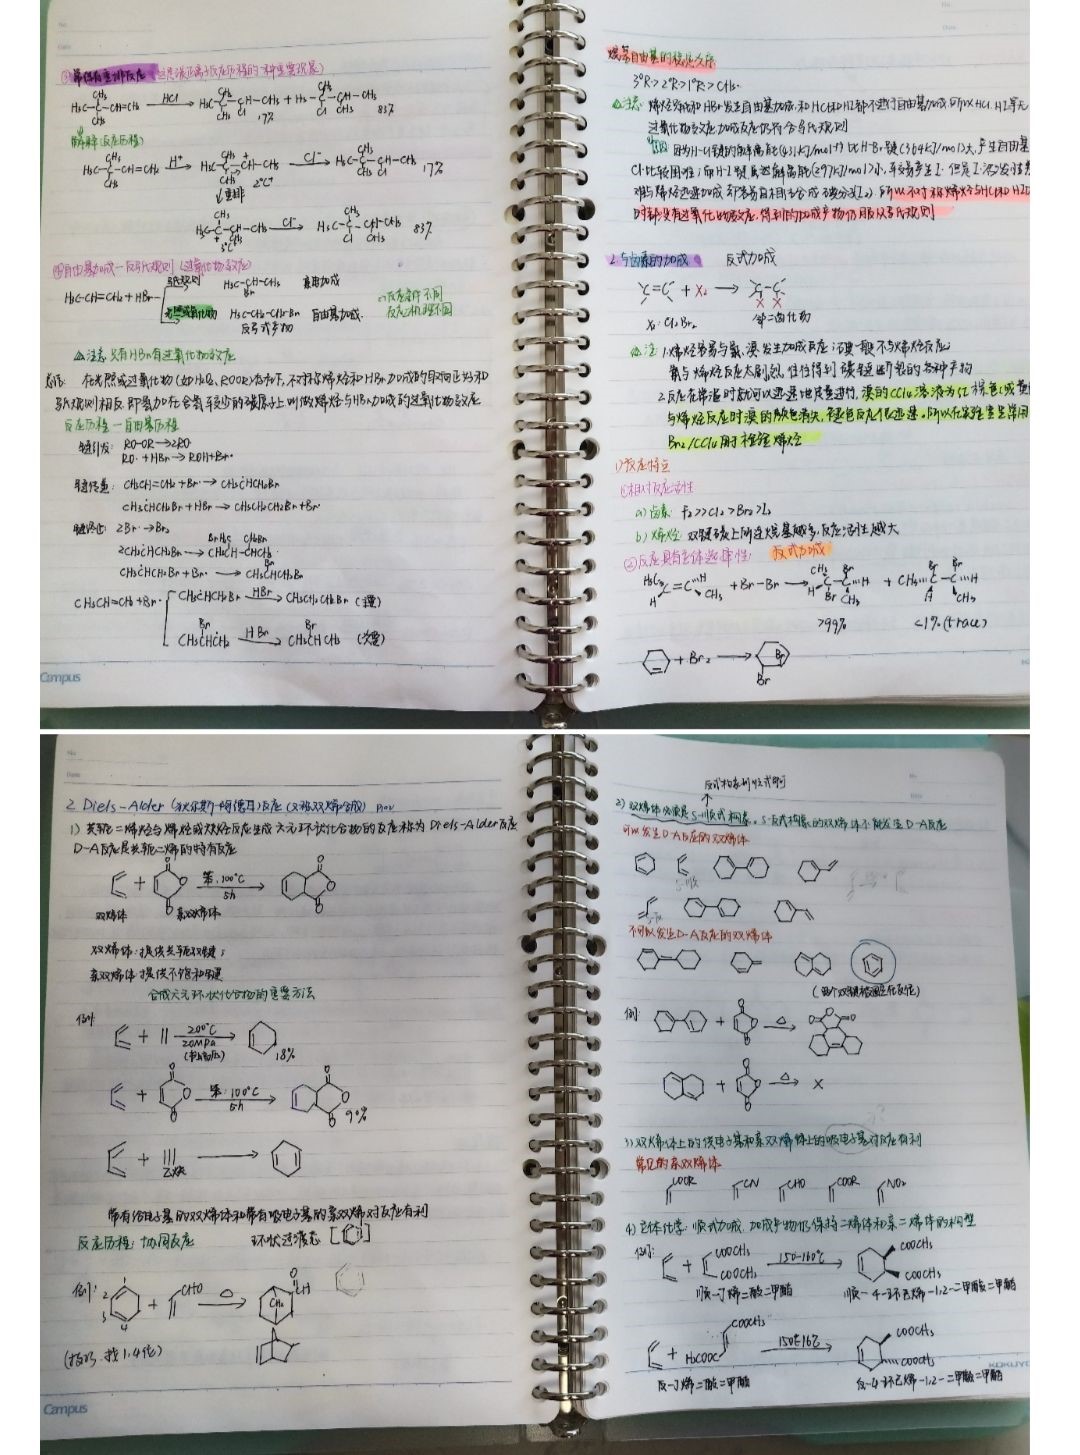 ③常伴有重排反应 (这是碳正离子反应历程的一种重要现象)
CH₃ CH₃ CH₃
H₃C-C-CH=CH₂ HCl H₃C-C-CH-CH₃ + H₃C-C-CH-CH₃
CH₃ CH₃ Cl 17% Cl CH₃ 83%
解释(反应历程)
CH₃ CH₃ CH₃
H₃C-C-CH=CH₂ H⁺ H₃C-C-CH-CH₃ Cl⁻ H₃C-C-CH-CH₃ 17%
CH₃ CH₃ 2°C⁺ CH₃ Cl
重排
CH₃ CH₃
H₃C-C-CH-CH₃ Cl⁻ H₃C-C-CH-CH₃ 83%
3°C⁺ CH₃ Cl CH₃
④自由基加成-反马氏规则 (过氧化物效应)
马氏规则 H₃C-CH-CH₃ 亲电加成
Br
H₃C-CH=CH₂ + HBr
光照或过氧化物 H₃C-CH₂-CH₂-Br 自由基加成
反马式产物
反应条件不同
反应机理不同
△注意:只有HBr有过氧化物效应
在光照或过氧化物(如H₂O₂、ROOR)存在下,不对称烯烃和HBr加成的取向正好和
马氏规则相反,即氢加在含氢较少的碳原子上叫做烯烃与HBr加成的过氧化物效应
反应历程—自由基历程
链引发: RO-OR→2RO·
RO· + HBr→ROH+Br·
链传递: CH₃CH=CH₂ + Br·→CH₃ĊHCH₂Br
CH₃ĊHCH₂Br + HBr→CH₃CH₂CH₂Br+Br·
链终止: 2Br·→Br₂
BrH₂C CH₂Br
2CH₃ĊHCH₂Br→CH₃CH-CHCH₃
Br
CH₃ĊHCH₂Br + Br·→CH₃CHCH₂Br
CH₃CH=CH₂ + Br· CH₃ĊHCH₂Br HBr CH₃CH₂CH₂Br (主要)
Br Br
CH₃CHĊH₂ HBr CH₃CHCH₃ (次要)
Campus
烷基自由基的稳定次序
3°R·>2°R·>1°R·>CH₃·
△注意: 烯烃只能和HBr发生自由基加成,和HCl和HI都不进行自由基加成,所以HCl、HI等无
过氧化物效应,加成反应仍符合马氏规则
因为H-Cl键的解离能(431kJ/mol)比H-Br键(364kJ/mol)大,产生自由基
Cl·比较困难;而H-I键虽然解离能(297kJ/mol)小,较易产生I·但是I·活泼性差
难与烯烃迅速加成,却容易自相结合成碘分子(I₂).所以不对称烯烃与HCl和HI加成
时都没有过氧化物效应,得到的加成产物仍服从马氏规则
2.与卤素的加成 反式加成
C=C + X₂ → C-C
X X
X₂: Cl₂ Br₂ 邻二卤代物
△注: 1.烯烃容易与氯、溴发生加成反应,碘一般不与烯烃反应
氟与烯烃反应太剧烈,往往得到碳链断裂的各种产物
2.反应在常温时就可以迅速地定量进行,溴的CCl₄溶液为红棕色(或黄色)
与烯烃反应时溴的颜色消失,褪色反应很迅速,所以在实验室里常用
Br₂/CCl₄用于检验烯烃
1)反应特点
①相对反应活性
a) 卤素: F₂>>Cl₂>Br₂>I₂
b) 烯烃: 双键碳上所连烷基越多,反应活性越大
②反应具有立体选择性: 反式加成
H₃C H CH₃ Br Br
C=C + Br-Br → C-C H + CH₃ C-C H
H CH₃ H Br CH₃ H CH₃
>99% <1%(trace)
+ Br₂ → Br
Br
2. Diels-Alder (狄尔斯-阿德耳)反应 (又称双烯合成)
1) 共轭二烯烃与烯烃或炔烃反应生成六元环状化合物的反应称为Diels-Alder反应
D-A反应是共轭二烯的特有反应
+ 苯,100°C 5h
双烯体 亲双烯体
双烯体:提供共轭双键;
亲双烯体:提供不饱和键
合成六元环状化合物的重要方法
例:
+ 200°C 20MPa 18%
+ 苯,100°C 5h 90%
+ 乙炔
带有给电子基的双烯体和带有吸电子基的亲双烯对反应有利
反应历程:协同反应 环状过渡态
例: 1 2 3 4 + CHO △ CH₃
(找1,4位)
Campus
反式构象刚性或环阿
2) 双烯体必须是s-顺式构象,s-反式构象的双烯体不能发生D-A反应
可以发生D-A反应的双烯体
s-顺
s-反
不可以发生D-A反应的双烯体
例: + △
+ △ ×
3) 双烯体上的供电子基和亲双烯体上的吸电子基对反应有利
常见的亲双烯体
COOR CN CHO COOR NO₂
4) 立体化学: 顺式加成,加成产物仍保持二烯体和亲二烯体的构型
例: + COOCH₃ COOCH₃ 150-160°C COOCH₃ COOCH₃
顺-丁烯二酸二甲酯 顺-4-环己烯-1,2-二甲酸二甲酯
+ COOCH₃ H₃COOC COOCH₃ COOCH₃
反-丁烯二酸二甲酯 反-4-环己烯-1,2-二甲酸二甲酯
KOKUYO